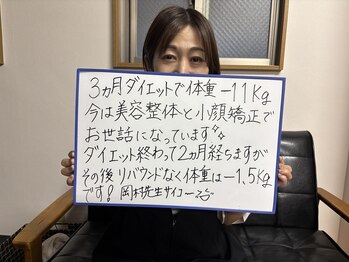 3ヵ月ダイエットで体重-11Kg
今は美容整体と小顔矯正で
お世話になっています
ダイエット終わって2ヵ月経ちますが
その後リバウンドなく体重は-1,5Kg
です!岡村先生サイコー